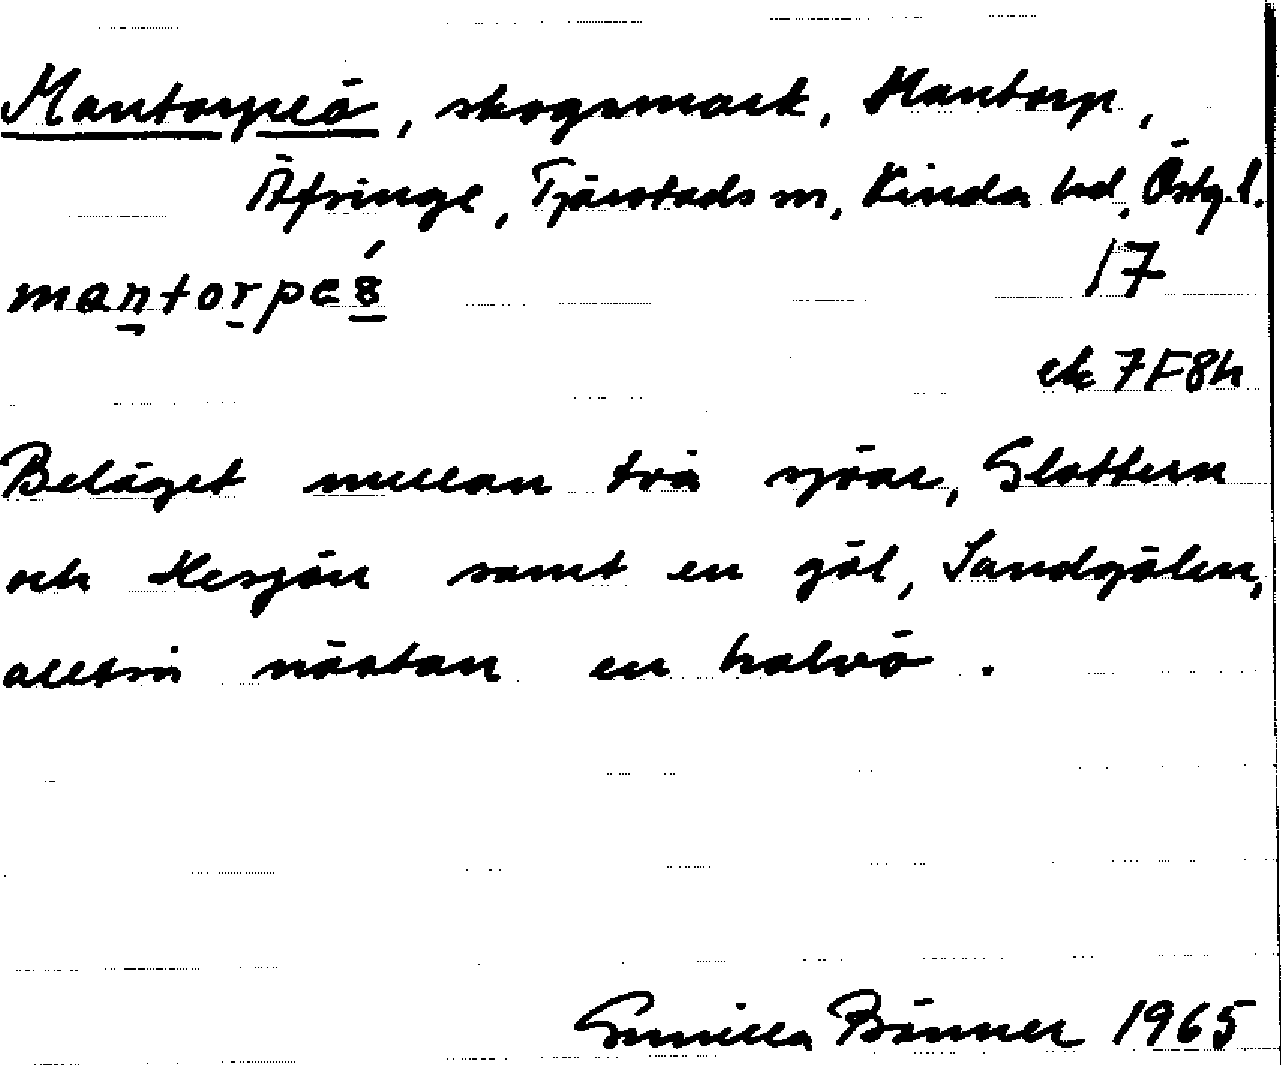 Mantorpeö, skogsmark, Mantorp,
Äfsinge, Tjärstads sn, Kinda hd, Östg.l.
mantorpe8́
17
ek 7F8h
Beläget mellan två sjöar, Glottern
och Mesjön samt en göl, Sandgölen,
alltså nästan en halvö.
Gunilla Bönner 1965